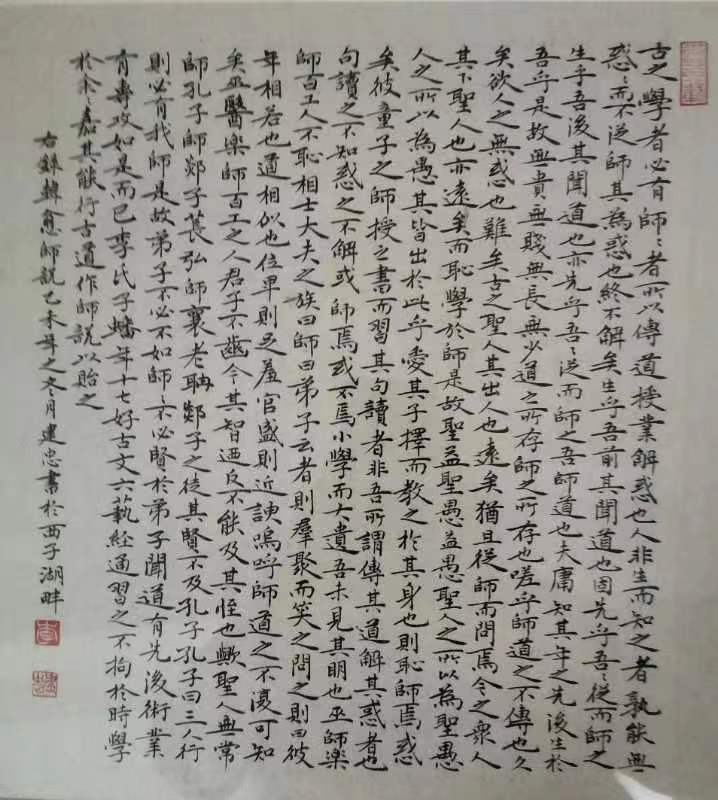 古之學者必有師〻者所以傳道授業解惑也人非生而知之者孰能無
惑〻而不從師其為惑也終不解矣生乎吾前其聞道也固先乎吾〻從而師之
生乎吾後其聞道也亦先乎吾〻從而師之吾師道也夫庸知其年之先後生於
吾乎是故無貴無賤無長無少道之所存師之所存也嗟乎師道之不傳也久
矣欲人之無惑也難矣古之聖人其出人也遠矣猶且從師而問焉今之衆人
其下聖人也亦遠矣而恥學於師是故聖益聖愚益愚聖人之所以為聖愚
人之所以為愚其皆出於此乎愛其子擇而教之於其身也則恥師焉惑
矣彼童子之師授之書而習其句讀者非吾所謂傳其道解其惑者也
句讀之不知惑之不解或師焉或不焉小學而大遺吾未見其明也巫師樂
師百工人不恥相士大夫之族曰師曰弟子云者則羣聚而笑之問之則曰彼
年相若也道相似也位卑則足羞官盛則近諛嗚呼師道之不復可知
矣巫醫樂師百工之人君子不齒今其智迺反不能及其怪也歟聖人無常
師孔子師郯子萇弘師襄老聃郯子之徒其賢不及孔子孔子曰三人行
則必有我師是故弟子不必不如師〻不必賢於弟子聞道有先後術業
有專攻如是而已李氏子蟠年十七好古文六藝經通習之不拘於時學
於余〻嘉其能行古道作師說以貽之
右錄韓愈師說己未年之冬月建忠書於西子湖畔